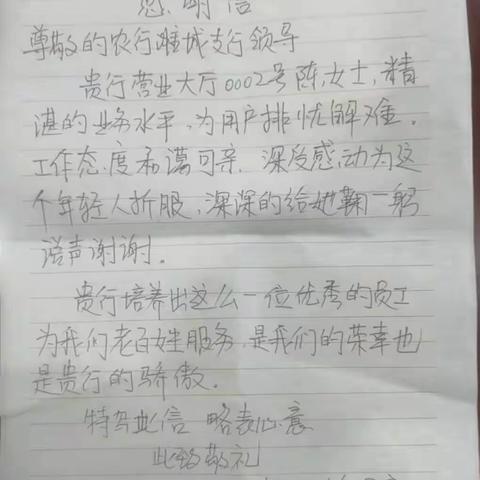 感谢信
尊敬的农行潍城支行领导
贵行营业大厅0002号陈女士,精
湛的业务水平,为用户排忧解难。
工作态度和蔼可亲.深受感动为这
个年轻人折服,深深的给她鞠一躬
说声谢谢。
贵行培养出这么一位优秀的员工
为我们老百姓服务,是我们的荣幸也
是贵行的骄傲。
特写此信 略表心意
此致敬礼